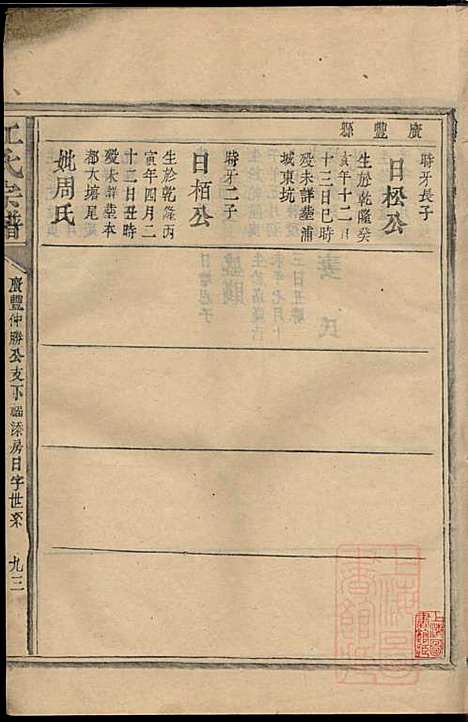 廣豐縣
時牙長子
日松公
生於乾隆癸
亥年十二月
十三日巳時
歿未詳墓浦
城東坑
時牙二子
日栢公
生於乾隆丙
寅年四月二
十二日丑時
歿未詳墓本
都大塘尾
妣周氏
江氏宗譜
廣豐仲勝公支下
房日字世系
九三